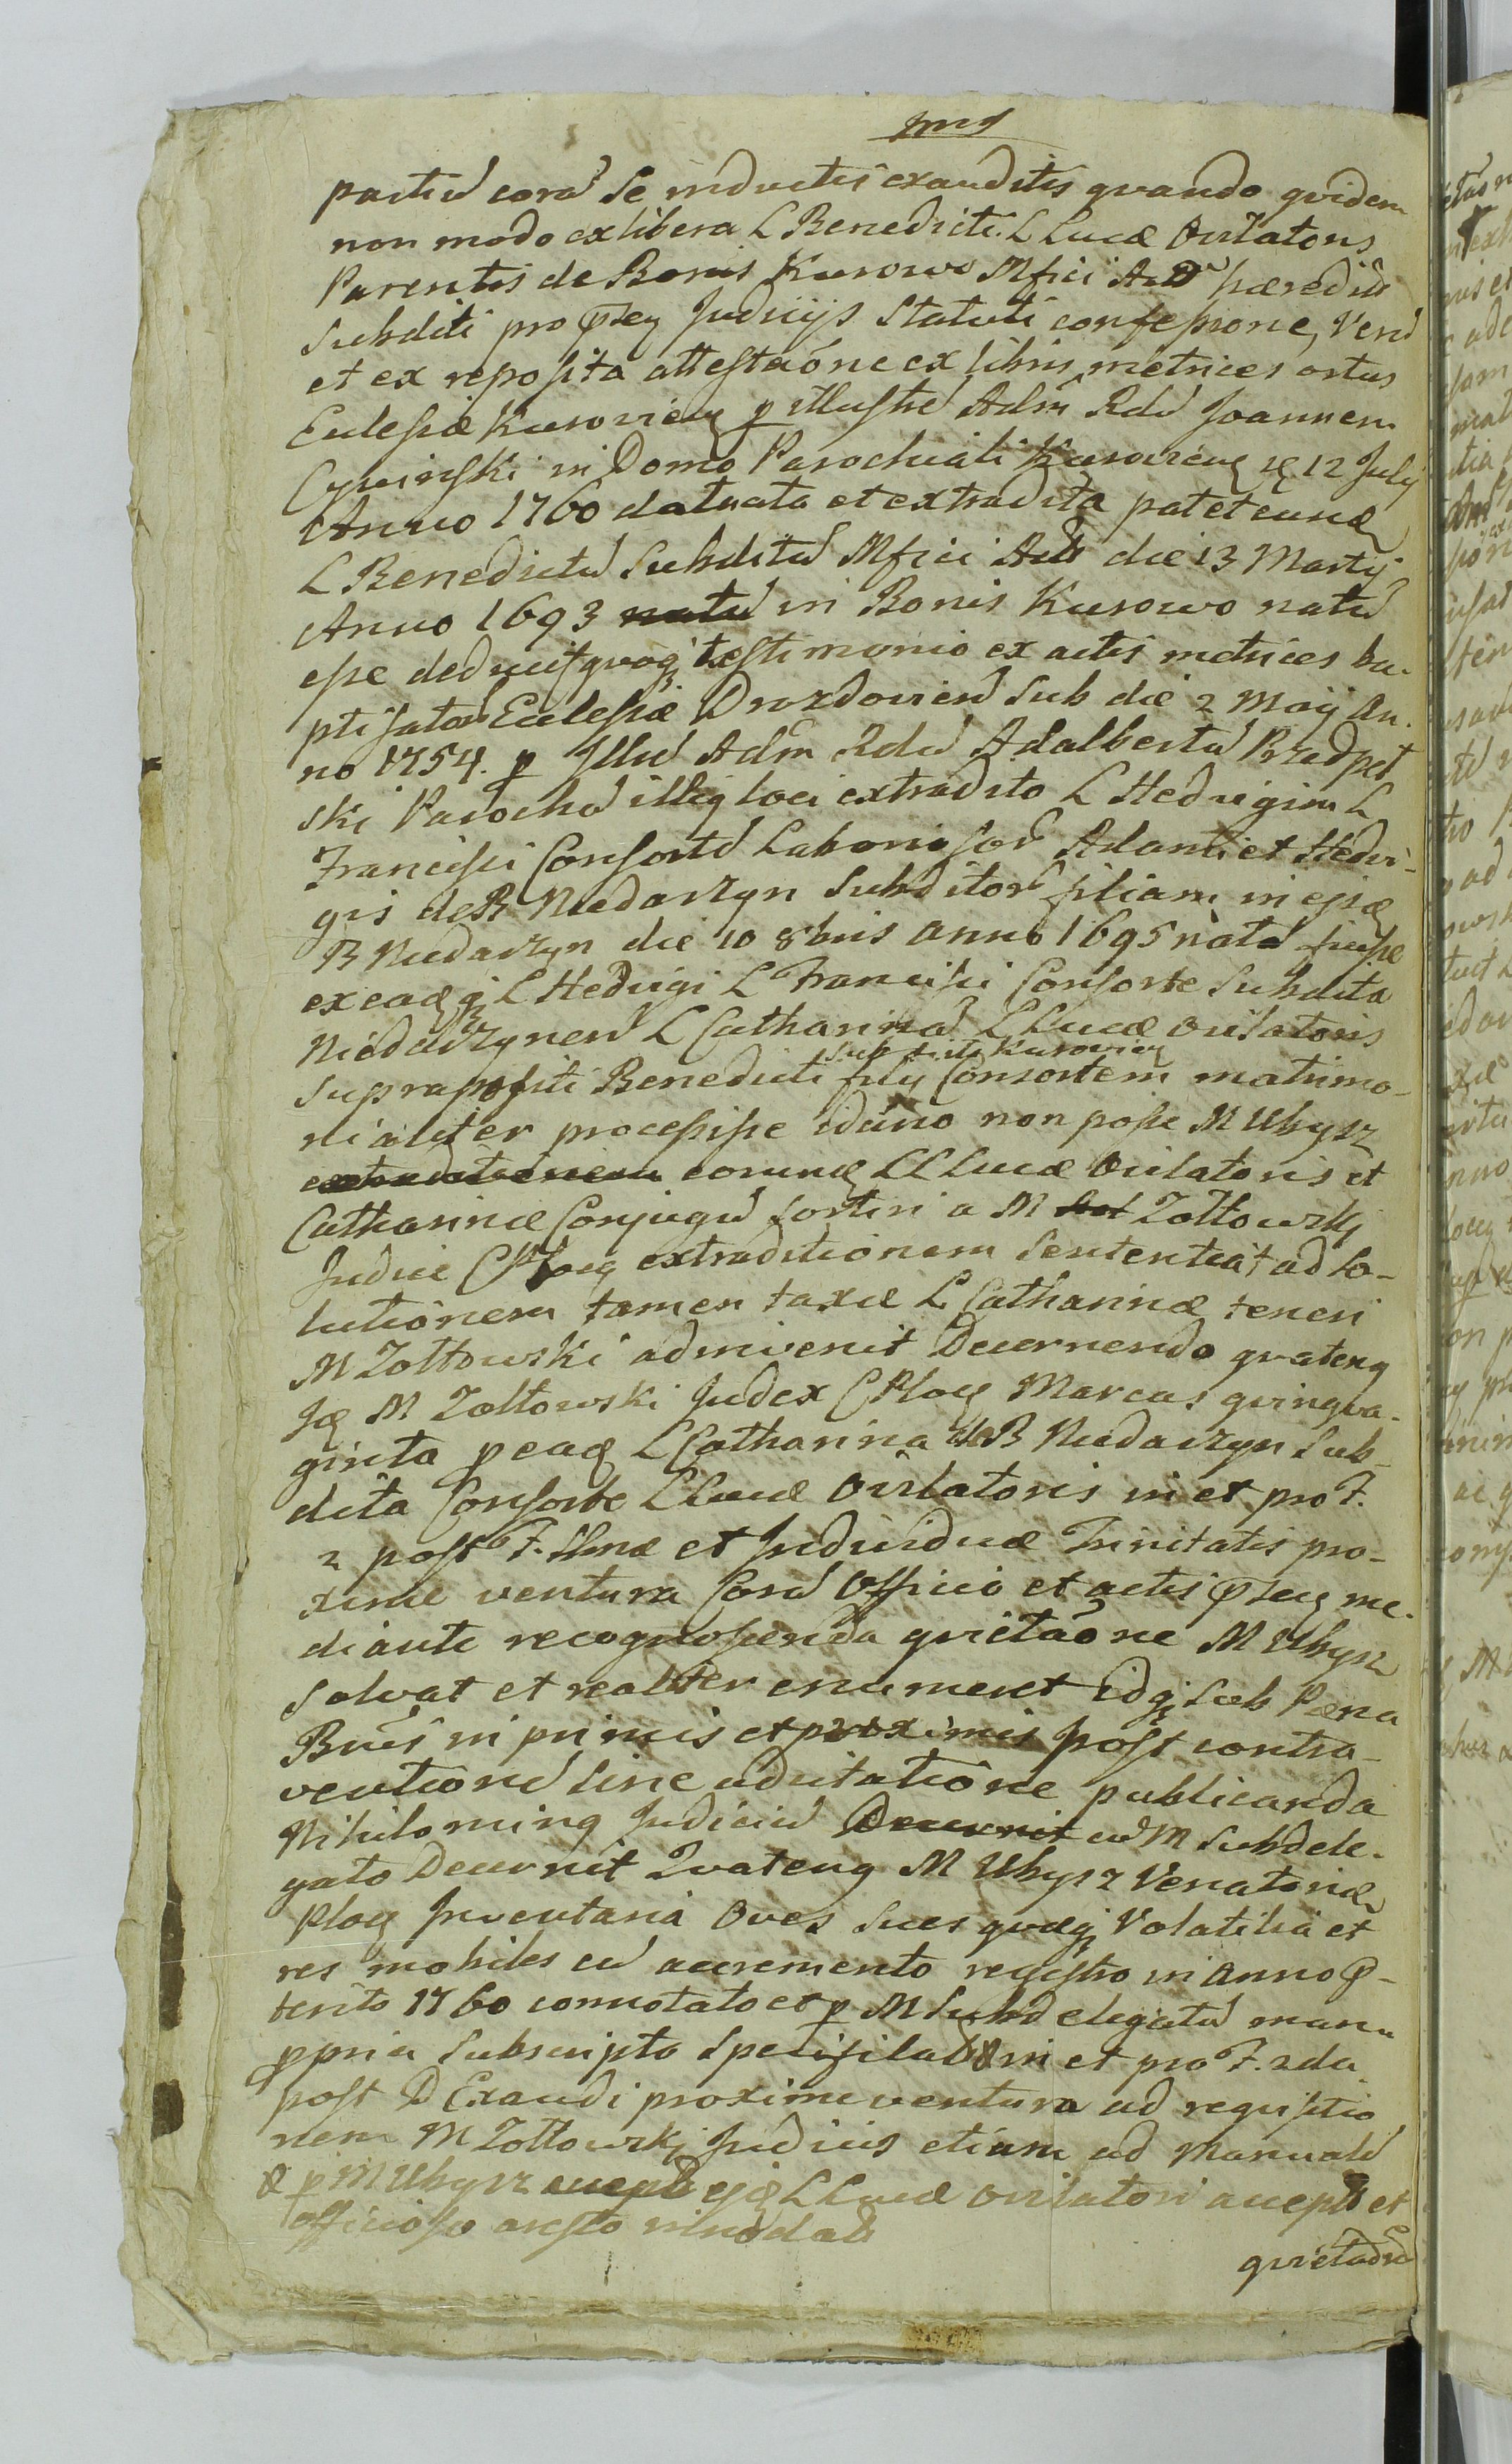 partiu corã Se inductis exauditis quando quidem
non modo ex libera L Benedicti L Lucæ Ovilatoris
Parentis de Bonis Kurowo Mfici Act hæreditt
Subditi pro pñteq Judicijs Statuti confessione, Verũ
et ex reposita attestãone ex libris metrices ortus
Eclesiæ Kurovieñ p Illustrẽ Adm Rdũ Joannem
Cywinski in Domo Parochiali Kurovieñ d 12 July
Anno 1760 datuata et extradita patet eundẽ
L Benedictũ Subditũ Mfici Act die 13 Martij
Anno 1693 natũ in Bonis Kurowo natũ
esse deducit quoq testimonio ex actis metrices ba-
ptisatorũ Eclesiæ Drozdovieñ Sub die 2 Maij An-
no 1754. p Illũ Adm Rdũ Adalbertũ Przedpeł
ski Parochũ illiq loci extradito L Hedvigim L
Francisci Consortẽ Laboriosorũ Adami et Hedvi-
gis de B Niedarzyn Subditorũ filiam in ejsđ
B Niedarzyn die 10 8bris anno 1695 natã fuisse
ex eadq q L Hedvigi L Francisci Consorte Subdita
Niedarzyneñ L Catharinã L Lucæ ovilatoris
Subditi Kurovieñ
Supraposti Benedicti filij Consortem matrimo-
nialiter processisse ideirco non posse M Ubysz
extraditionem eorundẽ LL Lucæ Ovilatoris et
Catharinæ Conjugũ sortiri a M Zołtowski
Judice C Ploceñ extraditionem Sententiat ad so-
lutionem tamen taxæ L Catharinæ teneri
M Zołtowski adinvenit Decernendo quatenq
Id M Zołtowski Judex C Ploceñ Marcas quinqua-
ginta p eadẽ L Catharina de B Niedarzyn Sub-
dita Consorte L Lucæ Ovilatoris in et pro F.
2 post F. SSmæ et Individuæ Trinitatis pro-
xime ventura Corã Officio et actis pñteq me-
diante recognoscenda quietãone M Ubysz
Solvat et realiter enumeret idq Sub Pæna
Bñis in primis et proximis post contra-
ventionẽ Sine adcitatione publicanda
Nihilominq Judiciũ Decernit cũ M Subdele-
gato Decernit Quatenq M Ubysz Venatoriđ
Ploceñ Inventaria Oves Sues quæq Volatilia et
res mobiles cũ accremento regestro in anno p-
terito 1760 connotato et p M Subdelegatũ manu
ppria Subscripto Specificatas in et pro F. 2da
post D Exaudi proxime ventura ad requisitio
nem M Zołtowski Judicis etiam ad Manualẽ
& p M Ubysz accept ejsđ L Lucæ ovilatori accept et
officioso aresto
quietaõne